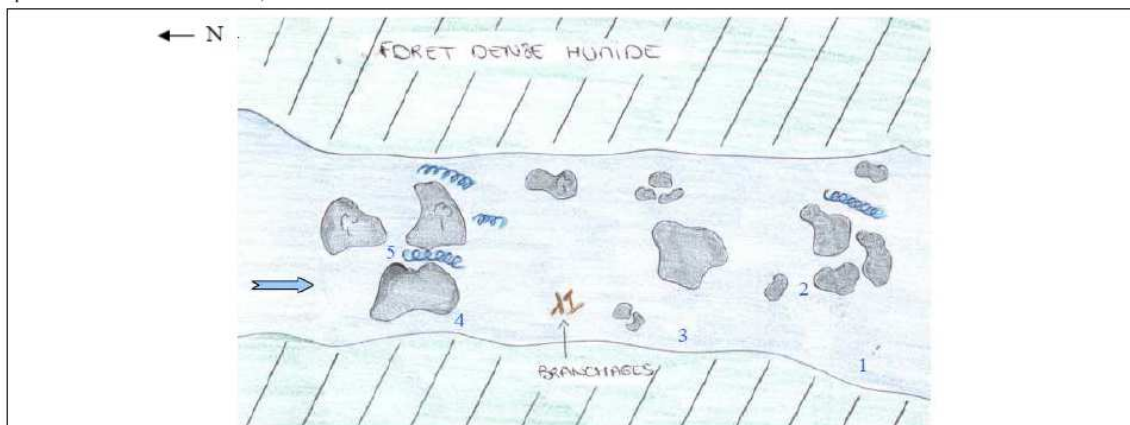 N
FORET DENSE HUMIDE
5
2
4
3
1
BRANCHAGES